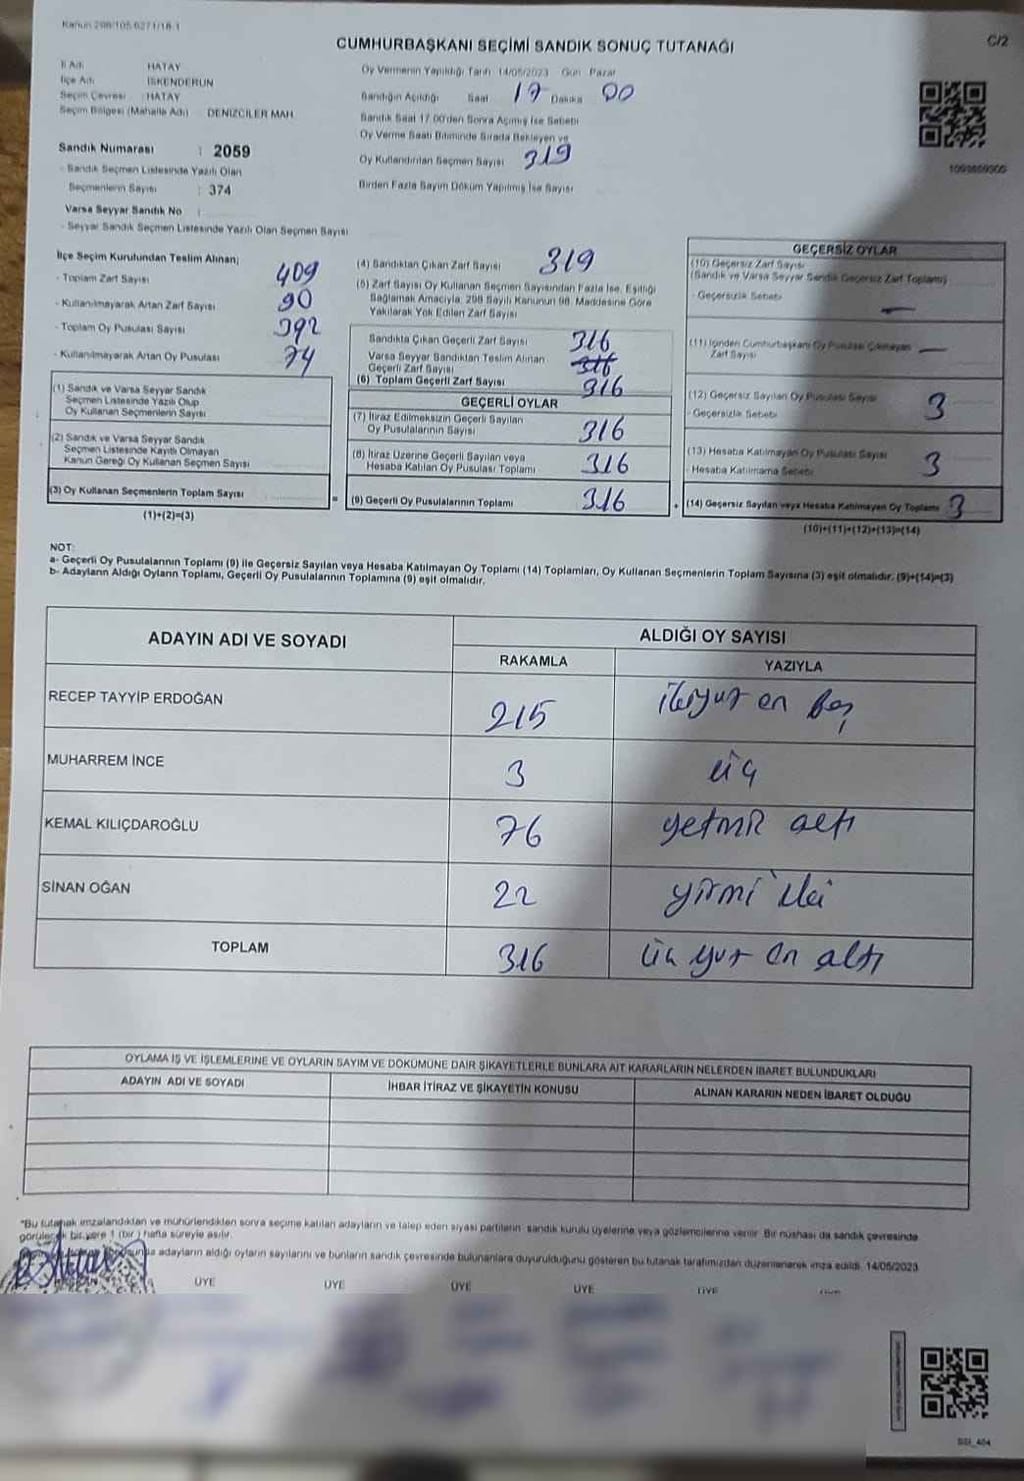 Kanun 298/105 6271/18-1
CUMHURBAŞKANI SEÇİMİ SANDIK SONUÇ TUTANAĞI
C/2
İl Adı HATAY
İlçe Adı İSKENDERUN
Seçim Çevresi : HATAY
Seçim Bölgesi (Mahalle Adı) DENİZCİLER MAH.
Sandık Numarası : 2059
- Sandık Seçmen Listesinde Yazılı Olan
Seçmenlerin Sayısı : 374
Varsa Seyyar Sandık No :
- Seyyar Sandık Seçmen Listesinde Yazılı Olan Seçmen Sayısı
Oy Vermenin Yapıldığı Tarih 14/05/2023 Gün Pazar
Sandığın Açıldığı Saat 17 Dakika 00
Sandık Saat 17.00'den Sonra Açılmış İse Sebebi
Oy Verme Saati Bitiminde Sırada Bekleyen ve
Oy Kullandırılan Seçmen Sayısı 319
Birden Fazla Sayım Döküm Yapılmış İse Sayısı
İlçe Seçim Kurulundan Teslim Alınan;
- Toplam Zarf Sayısı 409
- Kullanılmayarak Artan Zarf Sayısı 90
- Toplam Oy Pusulası Sayısı 392
- Kullanılmayarak Artan Oy Pusulası 74
(1) Sandık ve Varsa Seyyar Sandık
Seçmen Listesinde Yazılı Olup
Oy Kullanan Seçmenlerin Sayısı
(2) Sandık ve Varsa Seyyar Sandık
Seçmen Listesinde Kayıtlı Olmayan
Kanun Gereği Oy Kullanan Seçmen Sayısı
(3) Oy Kullanan Seçmenlerin Toplam Sayısı
(1)+(2)=(3)
(4) Sandıktan Çıkan Zarf Sayısı 319
(5) Zarf Sayısı Oy Kullanan Seçmen Sayısından Fazla İse, Eşitliği
Sağlamak Amacıyla, 298 Sayılı Kanunun 98. Maddesine Göre
Yakılarak Yok Edilen Zarf Sayısı
Sandıkta Çıkan Geçerli Zarf Sayısı 316
Varsa Seyyar Sandıktan Teslim Alınan
Geçerli Zarf Sayısı 316
(6) Toplam Geçerli Zarf Sayısı 316
GEÇERLİ OYLAR
(7) İtiraz Edilmeksizin Geçerli Sayılan
Oy Pusulalarının Sayısı 316
(8) İtiraz Üzerine Geçerli Sayılan veya
Hesaba Katılan Oy Pusulası Toplamı 316
= (9) Geçerli Oy Pusulalarının Toplamı 316
GEÇERSİZ OYLAR
(10) Geçersiz Zarf Sayısı
(Sandık ve Varsa Seyyar Sandık Geçersiz Zarf Toplamı)
- Geçersizlik Sebebi —
(11) İçinden Cumhurbaşkanı Oy Pusulası Çıkmayan
Zarf Sayısı —
(12) Geçersiz Sayılan Oy Pusulası Sayısı 3
- Geçersizlik Sebebi
(13) Hesaba Katılmayan Oy Pusulası Sayısı 3
- Hesaba Katılmama Sebebi
+ (14) Geçersiz Sayılan veya Hesaba Katılmayan Oy Toplamı 3
(10)+(11)+(12)+(13)=(14)
NOT:
a- Geçerli Oy Pusulalarının Toplamı (9) ile Geçersiz Sayılan veya Hesaba Katılmayan Oy Toplamı (14) Toplamları, Oy Kullanan Seçmenlerin Toplam Sayısına (3) eşit olmalıdır. (9)+(14)=(3)
b- Adayların Aldığı Oyların Toplamı, Geçerli Oy Pusulalarının Toplamına (9) eşit olmalıdır.
ADAYIN ADI VE SOYADI ALDIĞI OY SAYISI
RAKAMLA YAZIYLA
RECEP TAYYİP ERDOĞAN 215 ikiyüz on beş
MUHARREM İNCE 3 üç
KEMAL KILIÇDAROĞLU 76 yetmiş altı
SİNAN OĞAN 22 yirmi iki
TOPLAM 316 üç yüz on altı
OYLAMA İŞ VE İŞLEMLERİNE VE OYLARIN SAYIM VE DÖKÜMÜNE DAİR ŞİKAYETLERLE BUNLARA AİT KARARLARIN NELERDEN İBARET BULUNDUKLARI
ADAYIN ADI VE SOYADI İHBAR İTİRAZ VE ŞİKAYETİN KONUSU ALINAN KARARIN NEDEN İBARET OLDUĞU
"Bu tutanak imzalandıktan ve mühürlendikten sonra seçime katılan adayların ve talep eden siyasi partilerin sandık kurulu üyelerine veya gözlemcilerine verilir. Bir nüshası da sandık çevresinde
görülecek bir yere 1 (bir) hafta süreyle asılır.
adayların aldığı oyların sayılarını ve bunların sandık çevresinde bulunanlara duyurulduğunu gösteren bu tutanak tarafımızdan düzenlenerek imza edildi. 14/05/2023
ÜYE ÜYE ÜYE ÜYE ÜYE